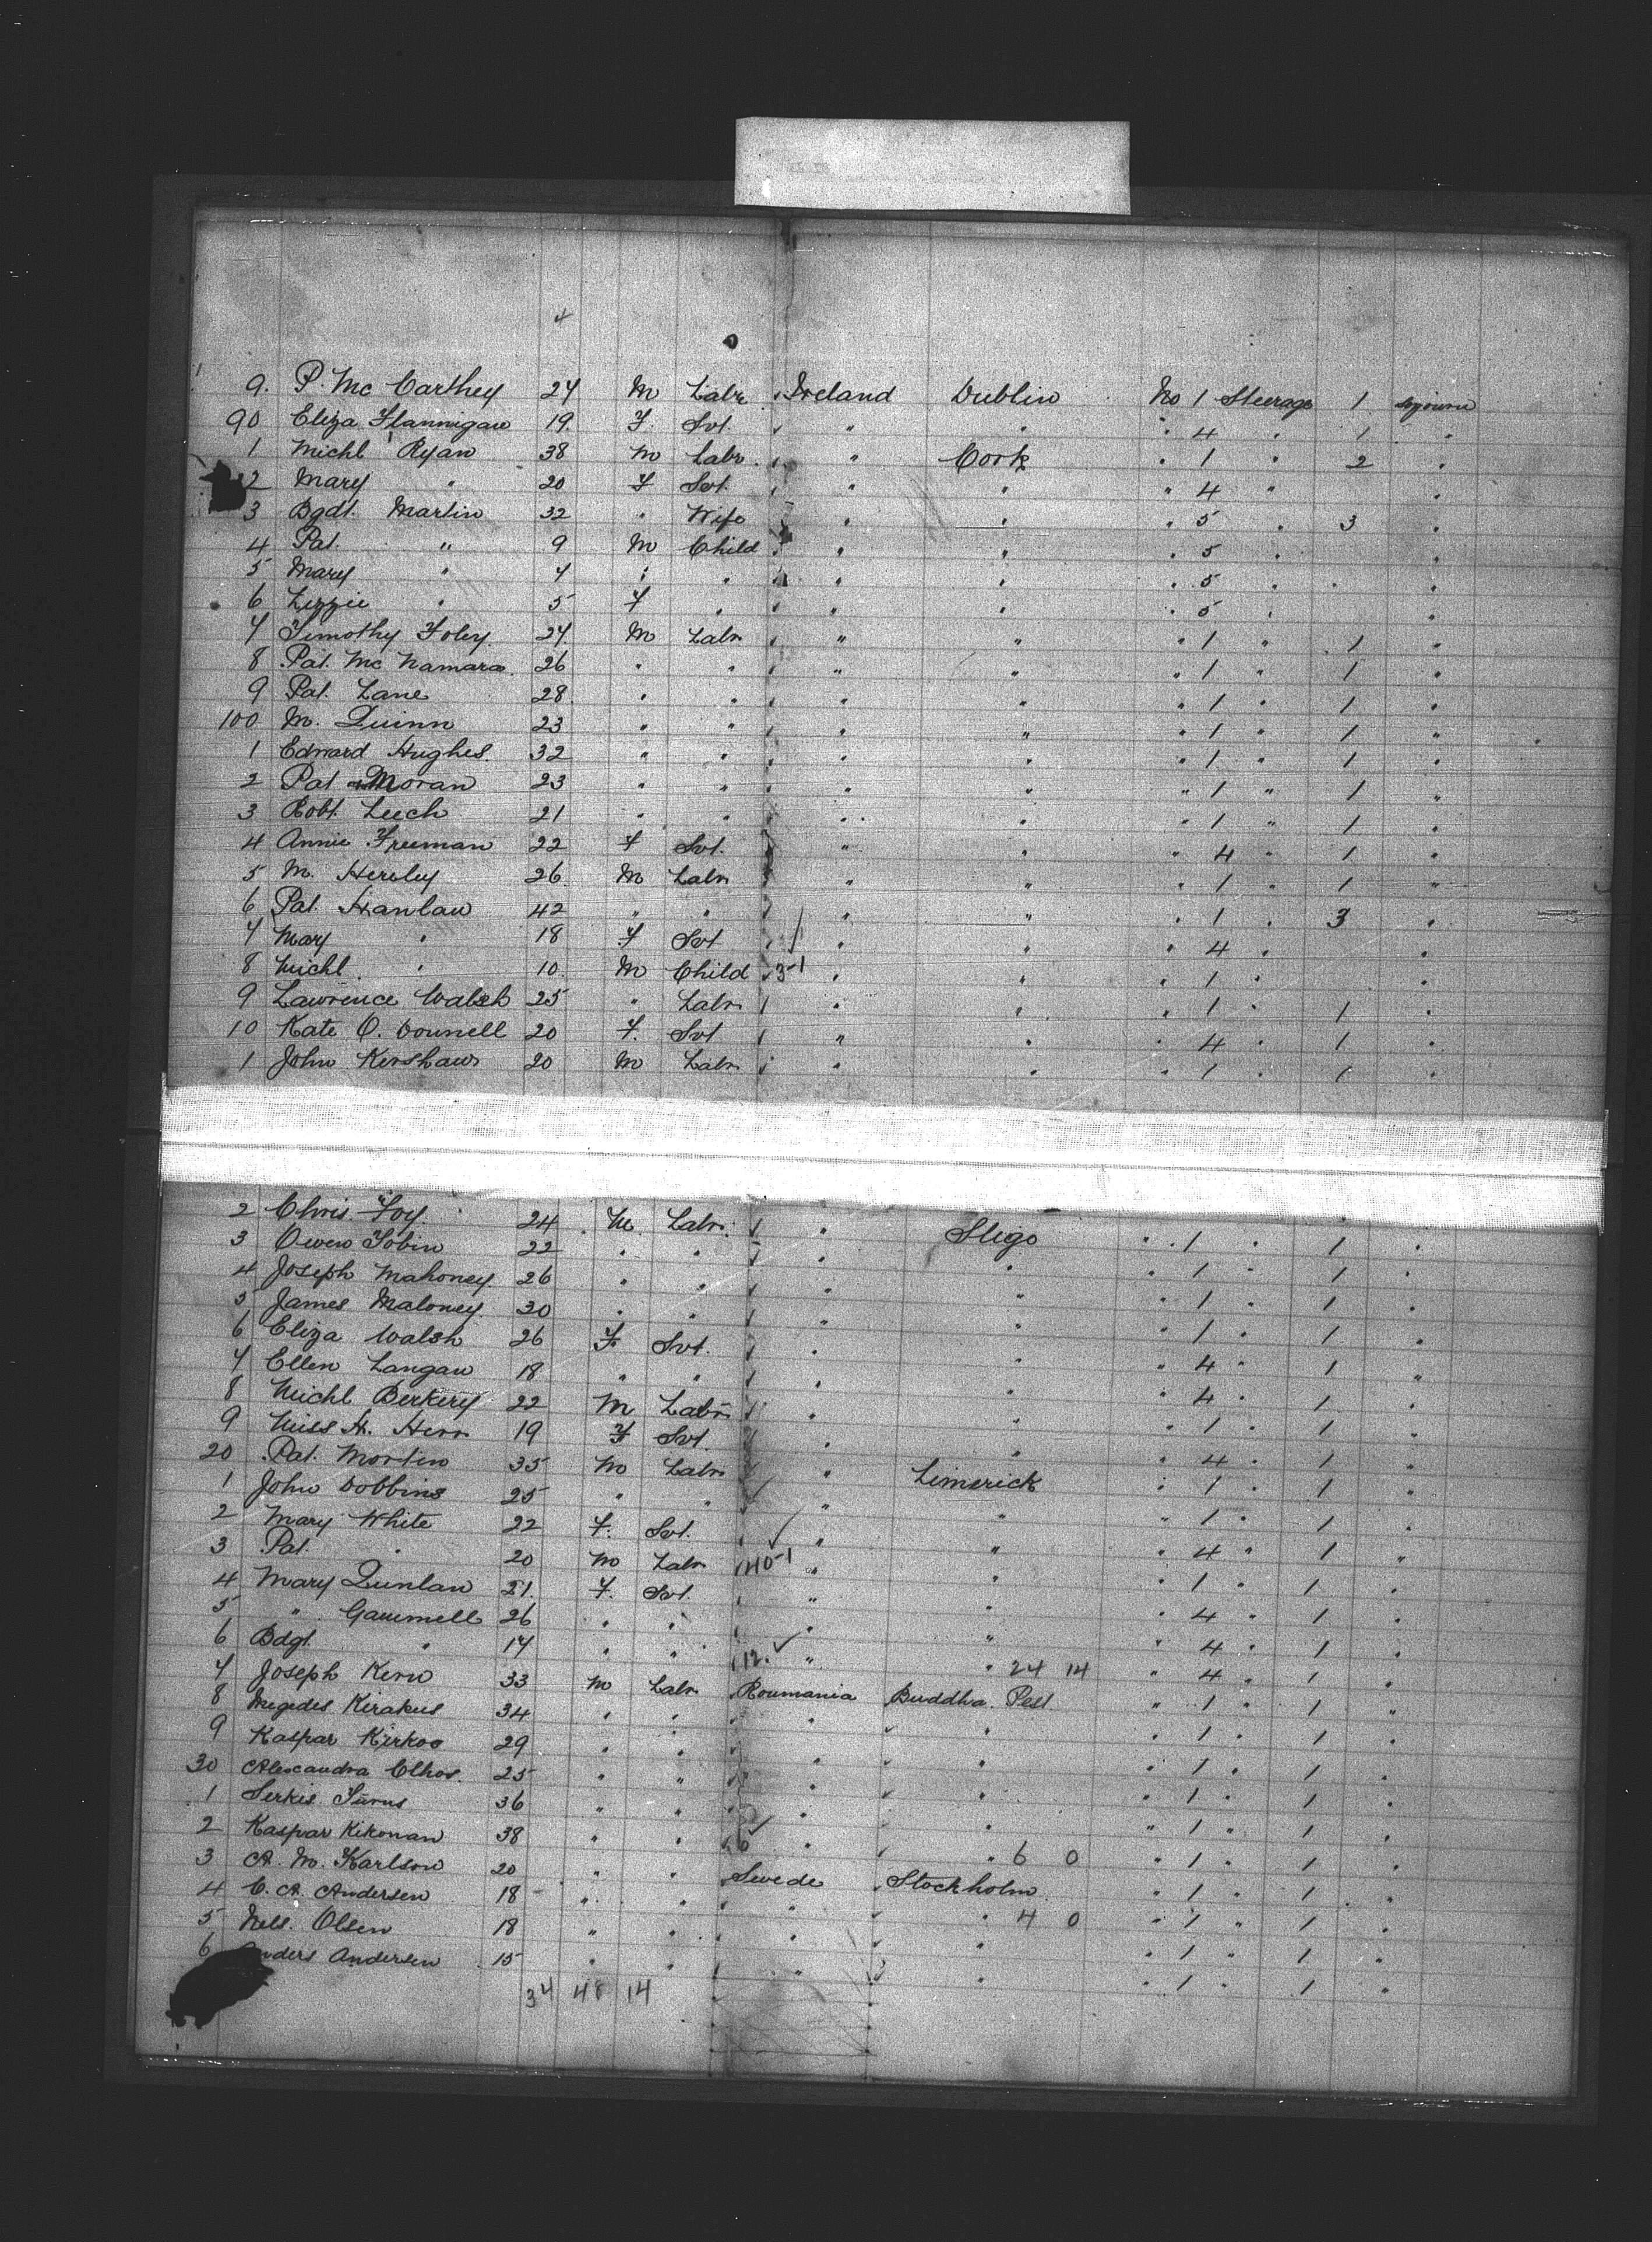 9. P. Mc Carthey 24 M Labr. Ireland Dublin No 1 Steerage 1 sojourn
90 Eliza Flannigan 19. F. Svt. " " " 4 " 1 "
1 Michl Ryan 38 M Labr. " Cork " 1 " 2 "
2 Mary " 20 F Svt. " " " 4 " "
3 Bgdt. Martin 32 " Wife " " " 5 " 3 "
4 Pat. " 9 M Child " " " 5 " "
5 Mary " 7 " " " " " 5 " "
6 Lizzie " 5 F " " " " 5 " "
7 Timothy Foley. 27. M Labr " " " 1 " 1 "
8 Pat. Mc Namara. 26 " " " " " 1 " 1 "
9 Pat. Lane 28 " " " " " 1 " 1 "
100 M. Quinn 23 " " " " " 1 " 1 "
1 Edward Hughes. 32 " " " " " 1 " 1 "
2 Pat Moran 23 " " " " " 1 " 1 "
3 Robt. Leech 21 " " " " " 1 " 1 "
4 Annie Freeman 22 F Svt. " " " 4 " 1 "
5 M. Hersley 26. M Labr " " " 1 " 1 "
6 Pat. Hanlan 42 " " " " " 1 " 3 "
7 Mary " 18 F Svt " " " 4 " "
8 Michl. " 10. M Child 3-1 " " " 1 " "
9 Lawrence Walsh 25 " Labr " " " 1 " 1 "
10 Kate O. Donnell 20 F. Svt " " " 4 " 1 "
1 John Kershaw 20 M Labr " " " 1 " 1 "
2 Chris. Foy. 24 M Labr. " Sligo " 1 " 1 "
3 Owen Tobin 22 " " " " " 1 " 1 "
4 Joseph Mahoney. 26 " " " " " 1 " 1 "
5 James Maloney. 30 " " " " " 1 " 1 "
6 Eliza Walsh 26 F Svt. " " " 4 " 1 "
7 Ellen Langan 18 " " " " " 4 " 1 "
8 Michl Berkery 22 M Labr " " " 1 " 1 "
9 Miss H. Herr 19 F Svt. " " " 4 " 1 "
20 Pat. Mortin 35 M Labr " Limerick " 1 " 1 "
1 John Dobbins 25 " " " " " 1 " 1 "
2 Mary White 22 F. Svt. " " " 4 " 1 "
3 Pat. " 20 M Labr 40-1 " " " 1 " 1 "
4 Mary Qunlan 21. F. Svt. " " " 4 " 1 "
5 " Gammell 26 " " " " " 4 " 1 "
6 Bdgt. " 17 " " 12. " " 24 14 " 4 " 1 "
7 Joseph Kern 33 M Labr. Roumania Buddha. Pest. " 1 " 1 "
8 Megedes Kerakus 34 " " " " " 1 " 1 "
9 Kaspar Kirkoo 29 " " " " " 1 " 1 "
30 Alexandra Clhos. 25 " " " " " 1 " 1 "
1 Serkis Surus 36 " " " " " 1 " 1 "
2 Kaspar Kikonan 38 " " 6 " " 6 0 " 1 " 1 "
3 A. M. Karlson 20 " " Swede Stockholm " 1 " 1 "
4 C. A. Andersen 18 " " " " 4 0 " 1 " 1 "
5 Nels. Olsen 18 " " " " " 1 " 1 "
6 Anders Andersen 15 " " " " " 1 " 1 "
34 48 14